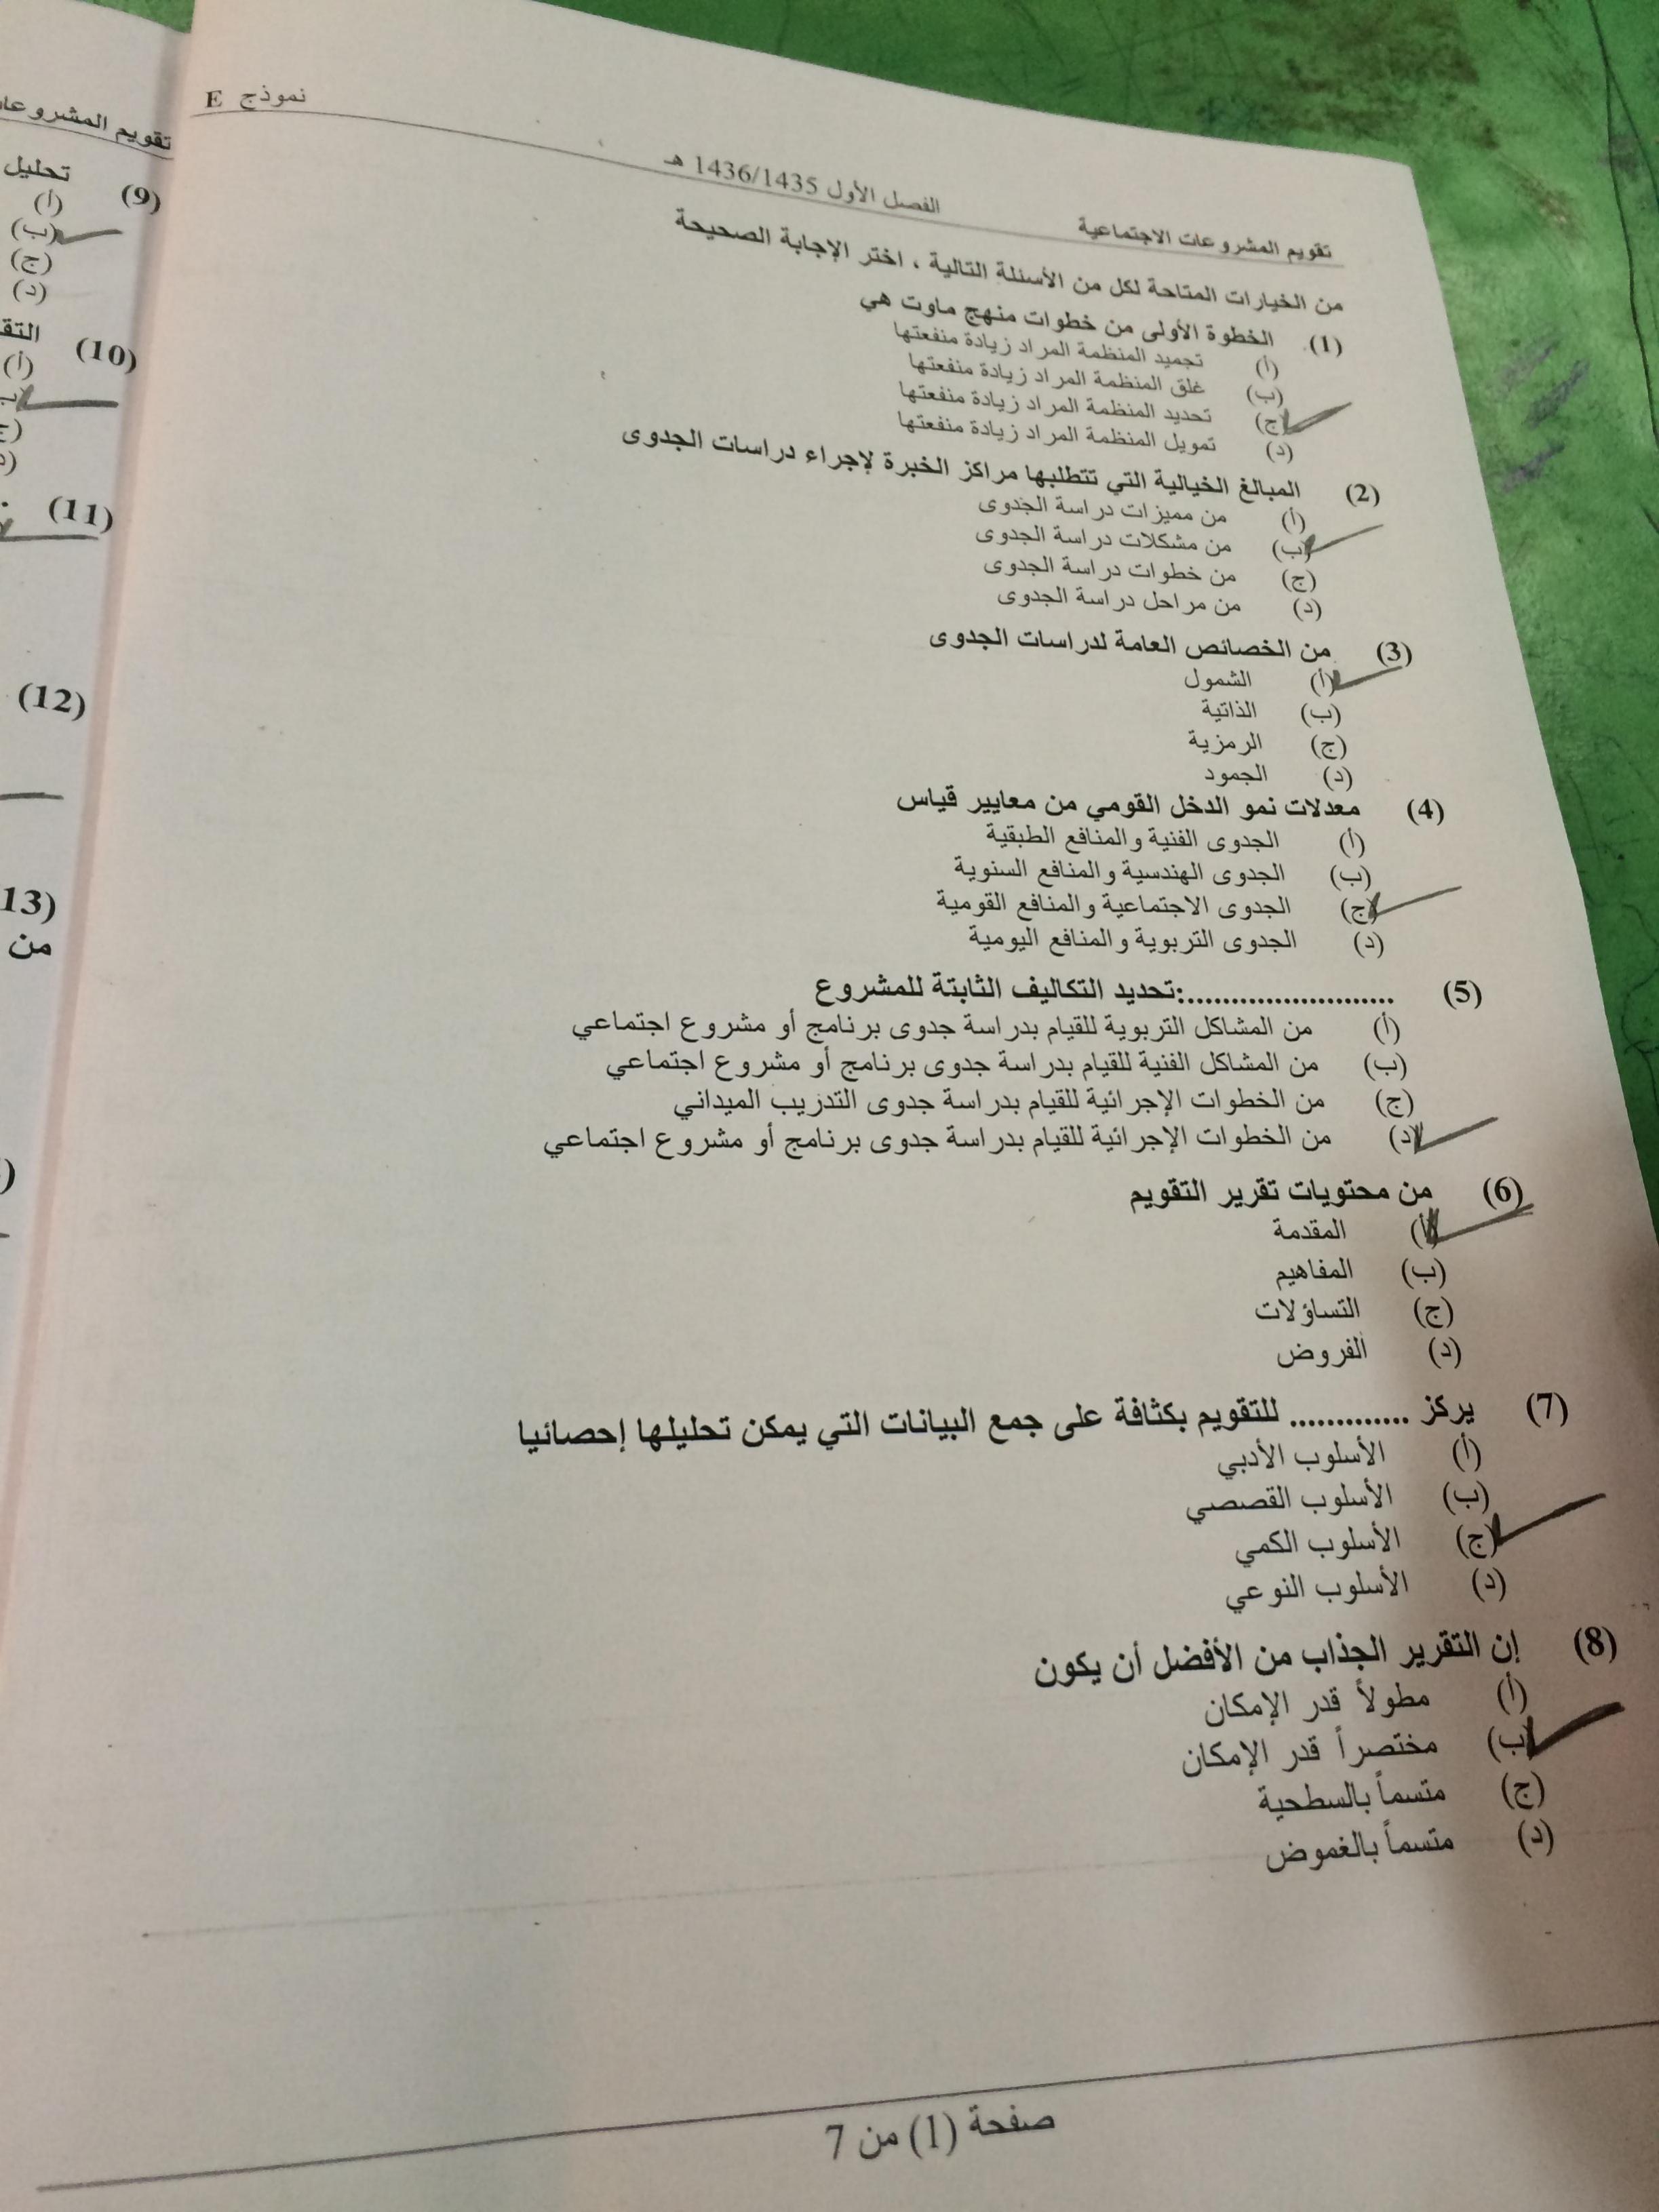 نموذج E
تقويم المشروعات الاجتماعية الفصل الأول 1436/1435 هـ
من الخيارات المتاحة لكل من الأسئلة التالية ، اختر الإجابة الصحيحة
(1) الخطوة الأولى من خطوات منهج ماوت هي
(أ) تجميد المنظمة المراد زيادة منفعتها
(ب) غلق المنظمة المراد زيادة منفعتها
(ج) تحديد المنظمة المراد زيادة منفعتها
(د) تمويل المنظمة المراد زيادة منفعتها
(2) المبالغ الخيالية التي تتطلبها مراكز الخبرة لإجراء دراسات الجدوى
(أ) من مميزات دراسة الجدوى
(ب) من مشكلات دراسة الجدوى
(ج) من خطوات دراسة الجدوى
(د) من مراحل دراسة الجدوى
(3) من الخصائص العامة لدراسات الجدوى
(أ) الشمول
(ب) الذاتية
(ج) الرمزية
(د) الجمود
(4) معدلات نمو الدخل القومي من معايير قياس
(أ) الجدوى الفنية والمنافع الطبقية
(ب) الجدوى الهندسية والمنافع السنوية
(ج) الجدوى الاجتماعية والمنافع القومية
(د) الجدوى التربوية والمنافع اليومية
(5) ........................:تحديد التكاليف الثابتة للمشروع
(أ) من المشاكل التربوية للقيام بدراسة جدوى برنامج أو مشروع اجتماعي
(ب) من المشاكل الفنية للقيام بدراسة جدوى برنامج أو مشروع اجتماعي
(ج) من الخطوات الإجرائية للقيام بدراسة جدوى التدريب الميداني
(د) من الخطوات الإجرائية للقيام بدراسة جدوى برنامج أو مشروع اجتماعي
(6) من محتويات تقرير التقويم
(أ) المقدمة
(ب) المفاهيم
(ج) التساؤلات
(د) الفروض
(7) يركز ............. للتقويم بكثافة على جمع البيانات التي يمكن تحليلها إحصائيا
(أ) الأسلوب الأدبي
(ب) الأسلوب القصصي
(ج) الأسلوب الكمي
(د) الأسلوب النوعي
(8) إن التقرير الجذاب من الأفضل أن يكون
(أ) مطولاً قدر الإمكان
(ب) مختصراً قدر الإمكان
(ج) متسماً بالسطحية
(د) متسماً بالغموض
صفحة (1) من 7
تقويم المشروعات
(9) تحليل
(أ)
(ب)
(ج)
(د)
(10)
(أ)
(11)
(12)
13)
من